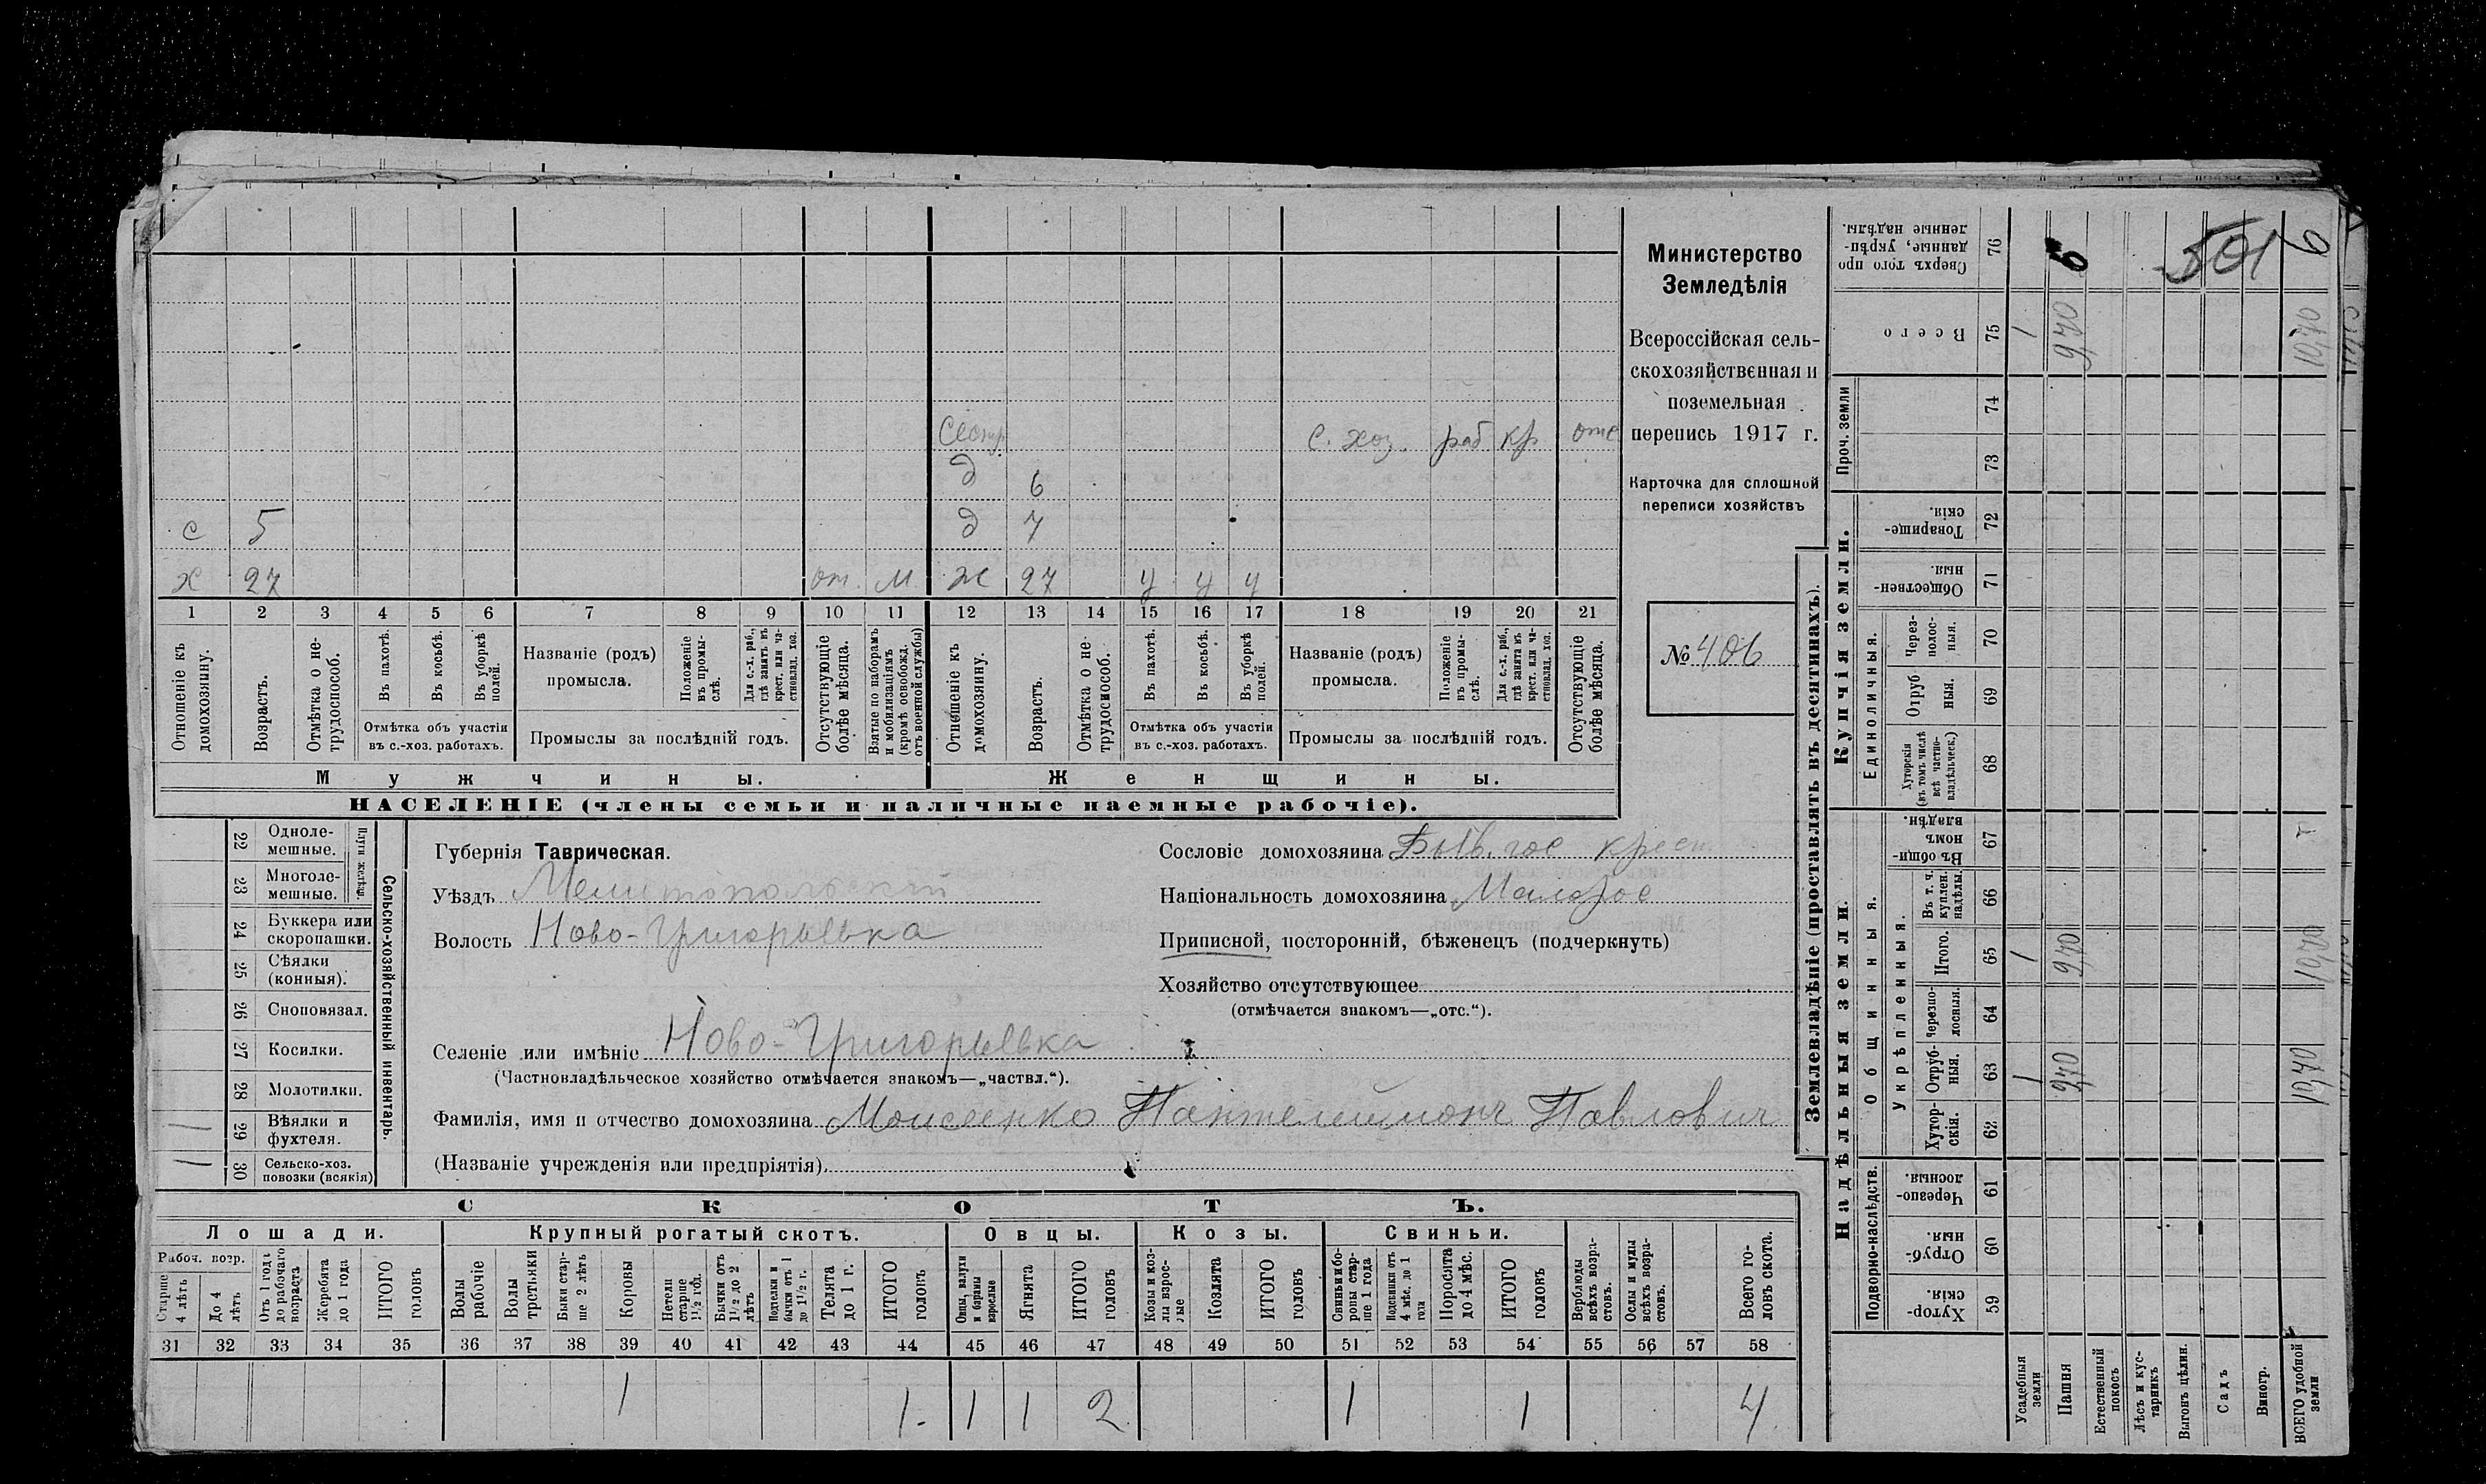 Министерство
Земледѣлія
Всероссійская сель-
скохозяйственная и
поземельная
перепись 1917 г.
Карточка для сплошной
переписи хозяйствъ
№ 406
С. хоз. раб кр отс
д 6
с 5 д 7
х 27 от. м ж 27 у у у
1 2 3 4 5 6 7 8 9 10 11 12 13 14 15 16 17 18 19 20 21
Отношеніе къ домохозяину.
Возрастъ.
Отмѣтка о не-трудоспособ.
Въ пахотѣ.
Въ косьбѣ.
Въ уборкѣ полей.
Отмѣтка объ участіи
въ с.-хоз. работахъ.
Названіе (родъ)
промысла.
Положеніе въ промы-слѣ.
Для с.-х. раб., гдѣ занятъ въ крест. или ча-стновлад. хоз.
Промыслы за послѣдній годъ.
Отсутствующіе болѣе мѣсяца.
Взятые по наборамъ и мобилизаціямъ (кромѣ освобожд. отъ военной службы)
Отношеніе къ домохозяину.
Возрастъ.
Отмѣтка о не-трудоспособ.
Въ пахотѣ.
Въ косьбѣ.
Въ уборкѣ полей.
Отмѣтка объ участіи
въ с.-хоз. работахъ.
Названіе (родъ)
промысла.
Положеніе въ промы-слѣ.
Для с.-х. раб., гдѣ занята въ крест. или ча-стновлад. хоз.
Промыслы за послѣдній годъ.
Отсутствующіе болѣе мѣсяца.
Мужчины. Женщины.
НАСЕЛЕНІЕ (члены семьи и наличные наемные рабочіе).
Сельско-хозяйственный инвентарь.
Плуги желѣзн.
22 Одноле-мешные.
23 Многоле-мешные.
24 Буккера или скоропашки.
25 Сѣялки (конныя).
26 Сноповязал.
27 Косилки.
28 Молотилки.
1 29 Вѣялки и фухтеля.
1 30 Сельско-хоз. повозки (всякія)
Губернія Таврическая.
Уѣздъ Мелитопольскій
Волость Ново-Григорьевка
Селеніе или имѣніе Ново-Григорьевка
(Частновладѣльческое хозяйство отмѣчается знакомъ—„частвл.“).
Фамилія, имя и отчество домохозяина Моисеенко Пантелеимонъ Павлович
(Названіе учрежденія или предпріятія)
Сословіе домохозяина Быв. гос крест
Національность домохозяина Малорос
Приписной, посторонній, бѣженецъ (подчеркнуть)
Хозяйство отсутствующее
(отмѣчается знакомъ—„отс.“).
СКОТЪ.
Лошади. Крупный рогатый скотъ. Овцы. Козы. Свиньи.
Рабоч. возр.
Старше 4 лѣтъ
До 4 лѣтъ
Отъ 1 года до рабочаго возраста
Жеребята до 1 года
ИТОГО головъ
Волы рабочіе
Волы третьяки
Быки стар-ше 2 лѣтъ
Коровы
Нетели старше 1½ год.
Бычки отъ 1½ до 2 лѣтъ
Подтелки и бычки отъ 1 до 1½ г.
Телята до 1 г.
ИТОГО головъ
Овцы, валухи и бараны взрослые
Ягнята
ИТОГО головъ
Козы и коз-лы взрос-лые
Козлята
ИТОГО головъ
Свиньи и бо-ровы стар-ше 1 года
Подсвинки отъ 4 мѣс. до 1 года
Поросята до 4 мѣс.
ИТОГО головъ
Верблюды всѣхъ возра-стовъ.
Ослы и мулы всѣхъ возра-стовъ.
Всего го-ловъ скота.
31 32 33 34 35 36 37 38 39 40 41 42 43 44 45 46 47 48 49 50 51 52 53 54 55 56 57 58
1 1. 1 1 2 1 1 4
Землевладѣніе (проставлять въ десятинахъ).
Сверхъ того про-данные, укрѣп-ленные надѣлы. 76 6 501 6
Всего 75 1 970 1070
Проч. земли 74 73
Купчія земли.
Товарище-скія. 72
Обществен-ныя. 71
Единоличныя.
Через-полос-ныя. 70
Отруб-ныя. 69
Хуторскія (въ томъ числѣ всѣ частно-владѣльческ.) 68
Надѣльныя земли.
Общинныя.
Въ общи-номъ владѣн. 67
Укрѣпленныя.
Въ т. ч. куплен. надѣлы. 66
Итого. 65 1 970 1070
Черезпо-лосныя. 64
Отруб-ныя. 63 1 970 1070
Хутор-скія. 62
Подворно-наслѣдств.
Черезпо-лосныя. 61
Отруб-ныя. 60
Хутор-скія. 59
Усадебныя земли
Пашня
Естественный покосъ
Лѣсъ и кус-тарникъ
Выгонъ цѣлин.
Садъ
Виногр.
ВСЕГО удобной земли